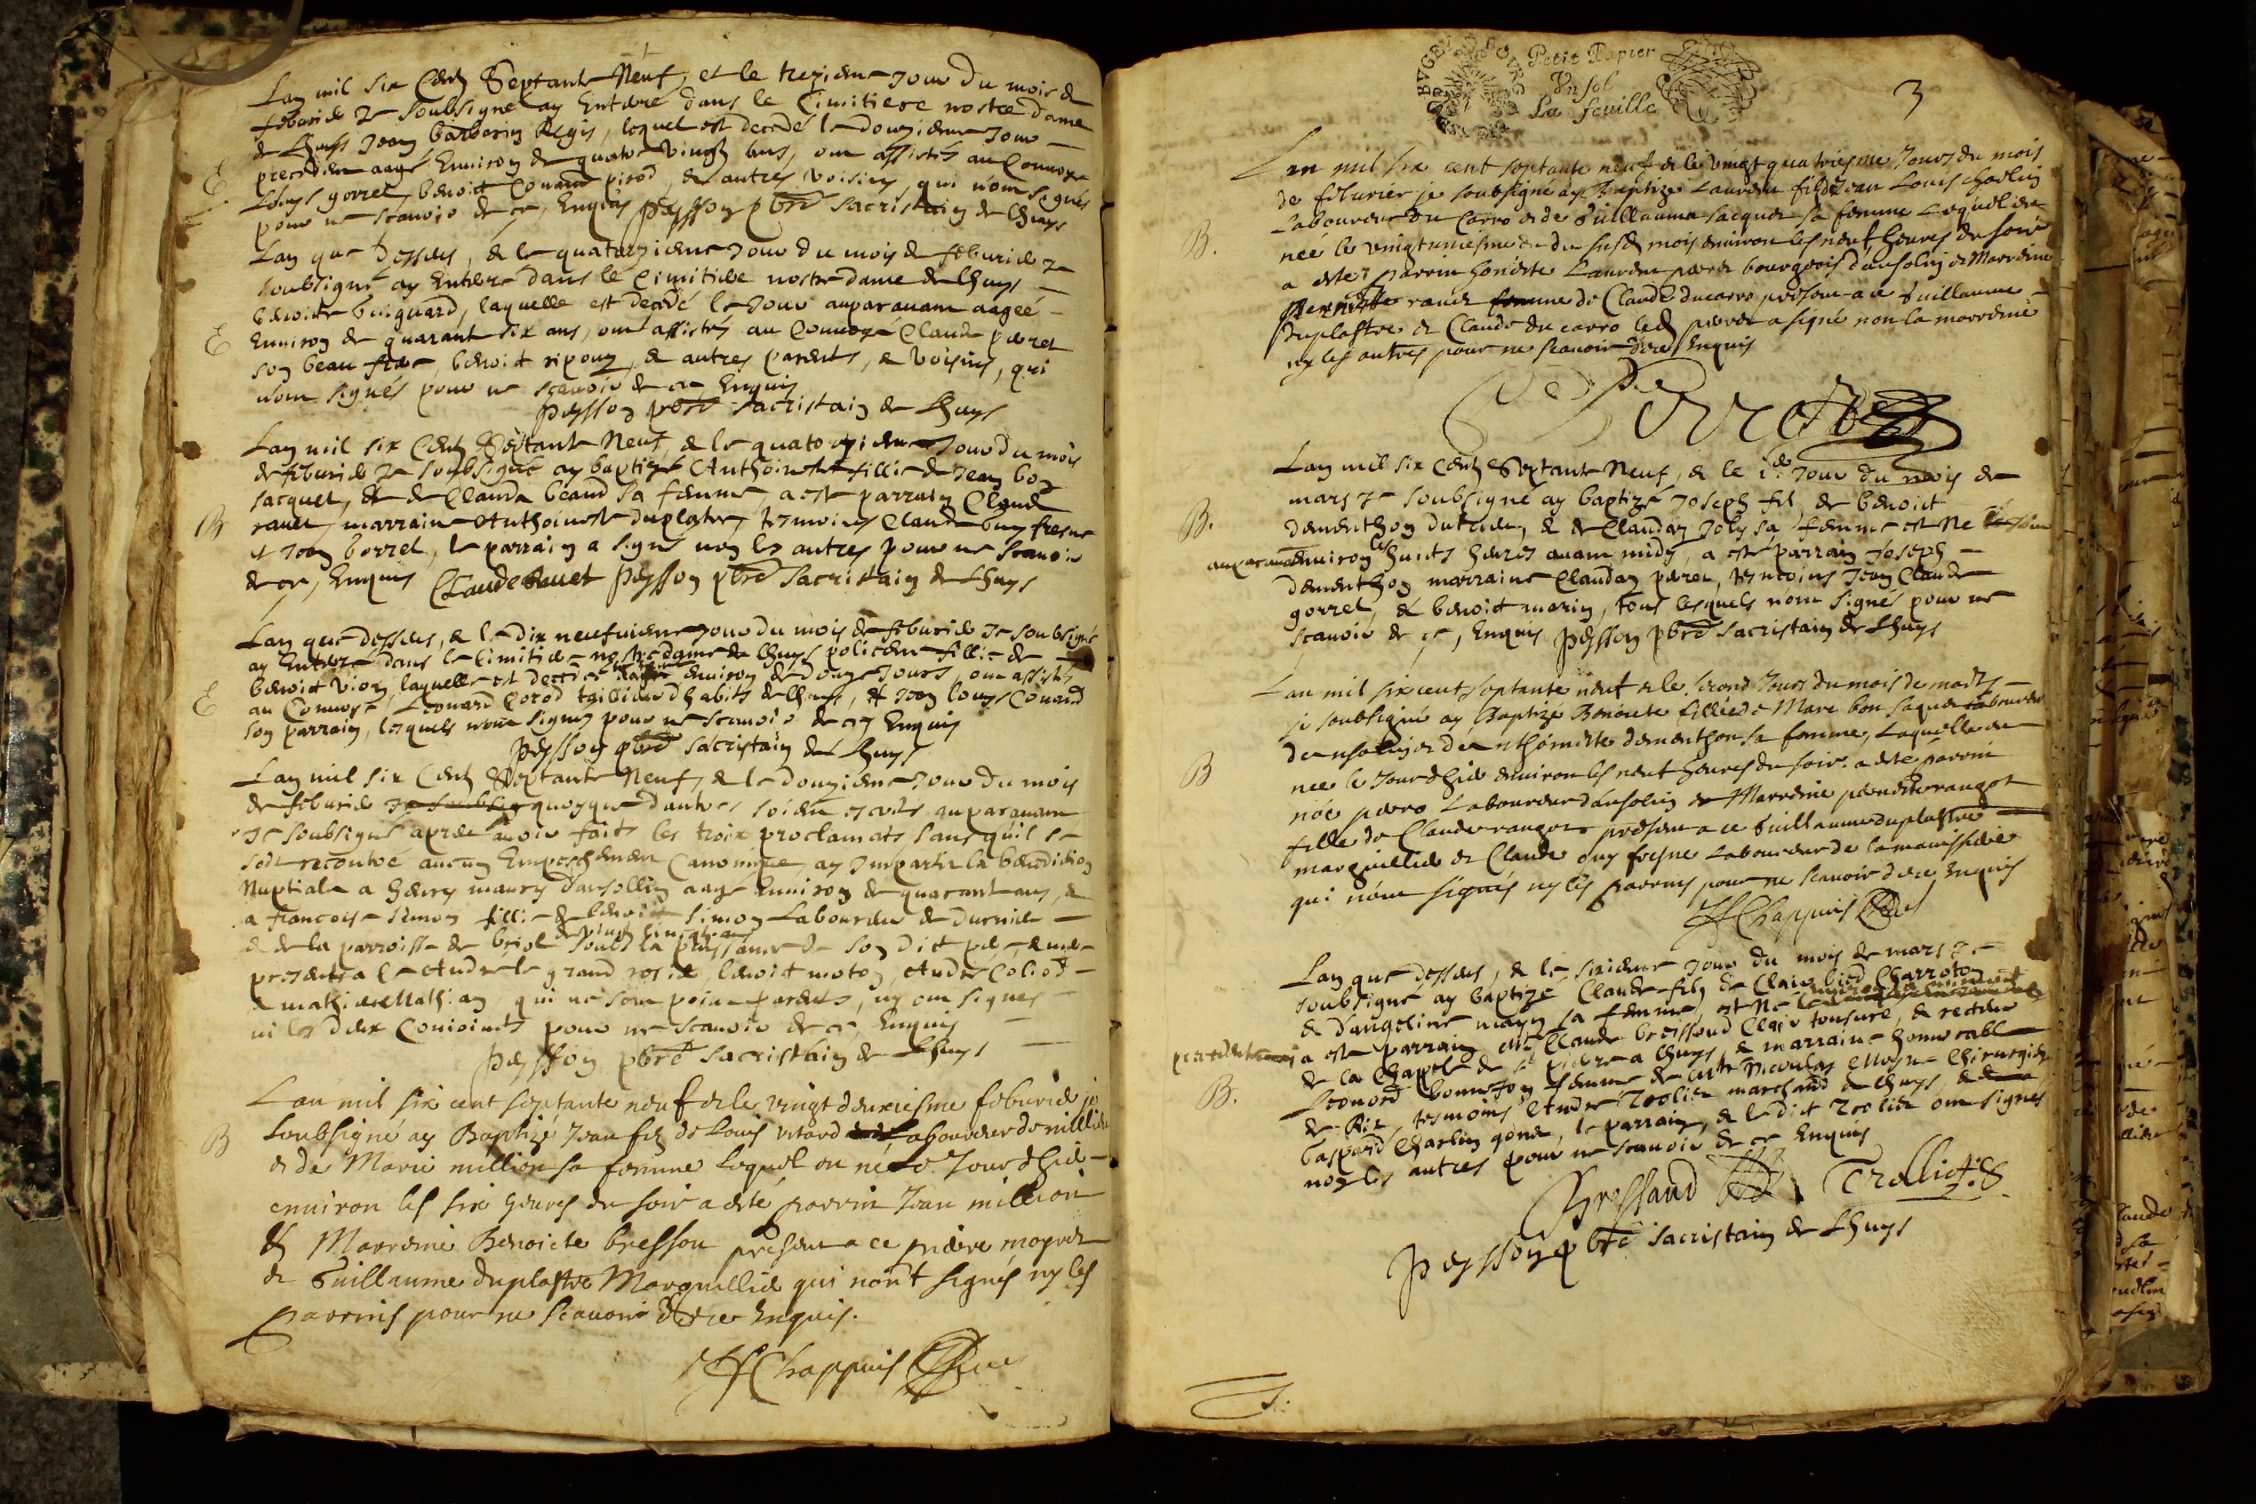 Lan mil six Cents Septante Neuf, et le trezieme Jour du mois de
feburier Je soubsigne ay Enterre dans le Cimitiere nostre dame
de Lhuys Jean barbarin Regis, lequel est decedé le douzieme Jour
precedent aagé Environ de quatre vingts ans, ont assistés au Convoye
E
Louys gorret, benoict Conand pirod, & autres voisins, qui nom signés
pour ne scavoir de ce, Enquis peysson pbre sacristain de Lhuys
Lan que dessus, & le quatorzieme Jour du mois de feburier Je
soubsigné ay Enterre dans le Cimitiere nostre dame de Lhuys
benoite buiguard, laquelle est decedé le Jour auparavant aagée
E
Environ de quarante six ans, ont assistés au Convoye Claude peret
son beau frere, benoict ripoug, & autres parents, & voisins, qui
nom signés pour ne scavoir de ce Enquis
peysson pbre sacristain de Lhuys
Lan mil six Cents Septante Neuf, & le quatorzieme Jour du mois
de feburier Je soubsigné ay baptizé Anthoinette fillie de Jean bon
Jacquet, & de Clauda beaud sa femme, a est parrain Claude
B
ravet, marraine Anthoinette duplatre, tesmoins Claude buy fresne
et Jean borret, le parrain a signé non les autres pour ne scavoir
de ce, Enquis Claude Ravet peysson pbre sacristain de Lhuys
Lan que dessus, & le dix neufvieme Jour du mois de feburier Je soubsigné
ay Enterré dans le Cimitiere nostre dame de Lhuys policene fillie de
benoict vion, laquelle est decedée aagee environ de douze Jours, ont assistés
E
au Convoye, Leonard Corod taillieur dhabits de Lhuys, & Jean Louys Conand
son parrain, lesquels nom signes pour ne scavoir de ce Enquis
peysson pbre sacristain de Lhuys
Lan mil six Cents Septante Neuf, & le douzieme Jour du mois
de feburier quoyque dautres soient escrits auparavant
Je soubsigné apres avoir faits les trois proclamats sans quil se
soit recontré aucun Empeschement Canonique ay Imparti la benediction
Nuptiale a henry maury dansollin aage Environ de quarante ans, &
a francoise simon fillie de benoict simon Laboureur de
& de la parroisse de briol soubs la puissance de son dict pere,
presents a ce Andre le grand rosier benoict moton, Andre Coliod
& mathieu Mathian qui ne sont point parents, ny ont signes
ni les deux Conioints pour ne scavoir de ce, Enquis
peysson pbre sacristain de Lhuys
Lan mil six cent septante neuf & le vingt deuxiesme feburier je
B
soubsigné ay Baptizé Jean fils de Louis vitard Laboureur de millieu
& de Marie million sa femme lequel en né le Jourdhuie
environ les six heures du soir a esté parrin Jean million
& Marreine Benoicte bresson present a ce pierre moyret
& Guillaume duplastre Marguillie qui nont signés ny les
parrins pour ne scavoir de ce Enquis.
Chappuis
BUGEY
BOURG
Petit Papier
Un sol
La feuille
3
Lan mil six cent septante neuf & le vingt quatriesme Jours du mois
de feburier je soubsigné ay Baptize Laurent fils Jean Louis charlin
Laboureur du Carro & de Guillauma Jacquet sa femme Lequel est
B.
neé le vingtuniesme du susd mois environ les neuf heures du soir
a esté parrin honeste Laurent peret bourgeois dansolin & Marreine
Pernette ravet femme de Claude ducarro present a ce Guillaume
Duplastre & Claude du carro led perret a signé non la marreine
ny les autres pour ne scavoir de ce Enquis
Perret
Lan mil six Cents Septante Neuf, & le 1er Jour du mois de
mars Je soubsigné ay baptizé Joseph fils de benoict
B.
dementhon, & de Claudaz Joly sa femme est Ne
auparavant environ les huicts heures avant midy, a est parrain Joseph
dementhon marraine Claudaz peret, tesmoins Jean Claude
gorret, & benoict marin, tous lesquels nom signé pour ne
scavoir de ce, Enquis peysson pbre sacristain de Lhuys
Lan mil six cent septante neuf & le second Jours du mois de mars
je soubsigné ay Baptizé Benoite filliee de Marc bon Jaquet Laboureur
dansolin & de Anthoinette dementhon sa femme, Laquelle est
B
nee le Jourdhuie environ les neuf heures du soir. a este parrin
nóe perro Laboureur dansolin & Marreine pernette rangot
fille de Claude rangot present a ce Guillaume duplastre
marguillie & Claude buy fresne Laboureur de
qui nont signés ny les parrins pour ne scavoir de ce Enquis
Chappuis
Lan que dessus, & le sixieme Jour du mois de mars Je
soubsigné ay baptizé Claude fils de Clair bied Charroton
& dangeline mayn sa femme, est Ne
precedent a est parrain mre Claude bressoud Clair tonsure, & recteur
de la Chapele de St pierre a Lhuys, & marraine honnorable
B.
Leonord bonneton femme de mre Nicoulas Moyne Chirurgien
de Rix, tesmoins Andre Trolliet marchand de Lhuys, &
baspard Charlin gone, le parrain, & le dict Trolliet ont signes
non les autres pour ne scavoir de ce Enquis
Bressaud Trolliet
peysson pbre sacristain de Lhuys